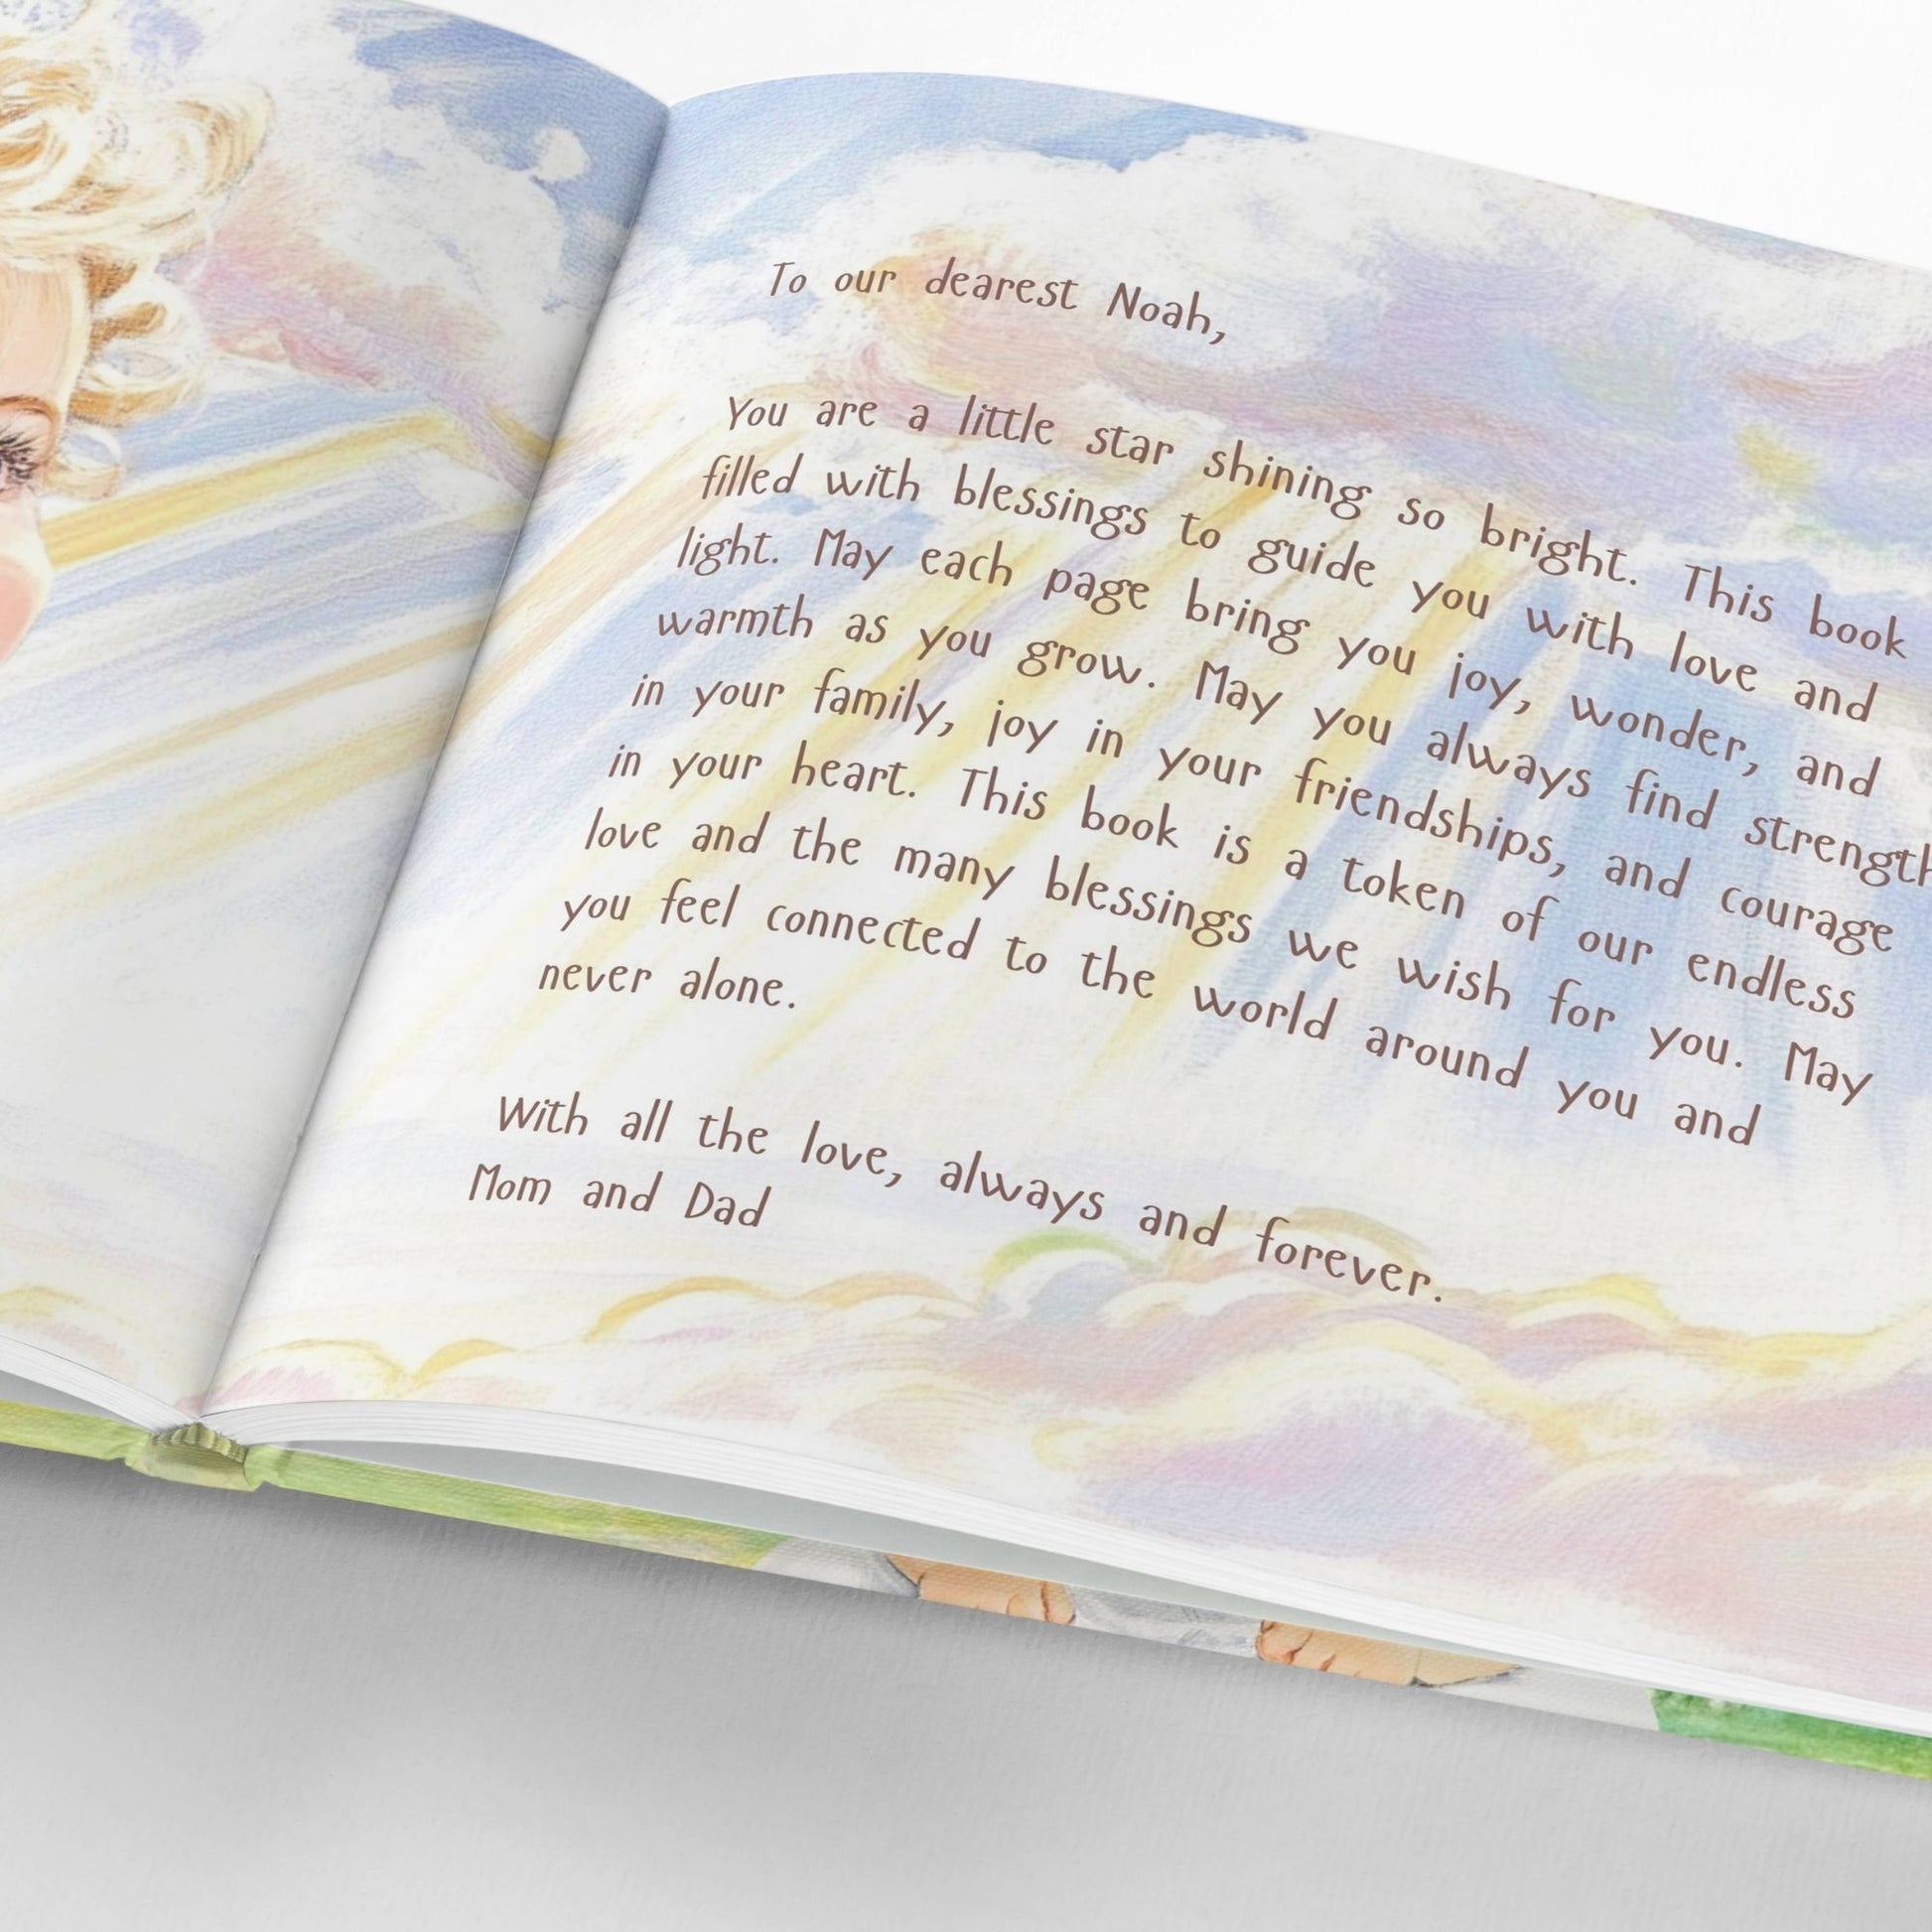 To our dearest Noah,
You are a little star shining so bright. This book
filled with blessings to guide you with love and
light. May each page bring you joy, wonder, and
warmth as you grow. May you always find strength
in your family, joy in your friendships, and courage
in your heart. This book is a token of our endless
love and the many blessings we wish for you. May
you feel connected to the world around you and
never alone.
With all the love, always and forever.
Mom and Dad